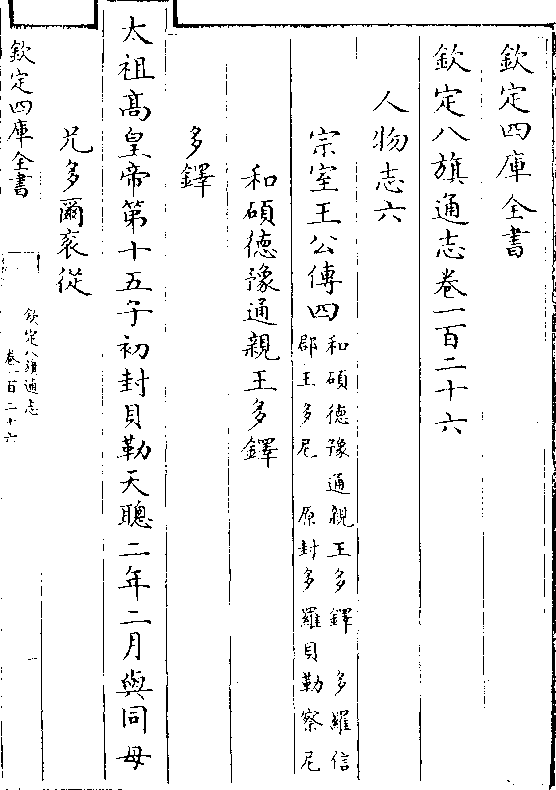 欽定四庫全書
欽定八旗通志卷一百二十六
人物志六
宗室王公傳四
和碩德豫通親王多鐸　多羅信
郡王多尼　原封多羅貝勒察尼
和碩德豫通親王多鐸
多鐸
太祖高皇帝第十五子初封貝勒天聰二年二月與同母
兄多爾袞從
欽定四庫全書
欽定八旗通志
卷一百二十六